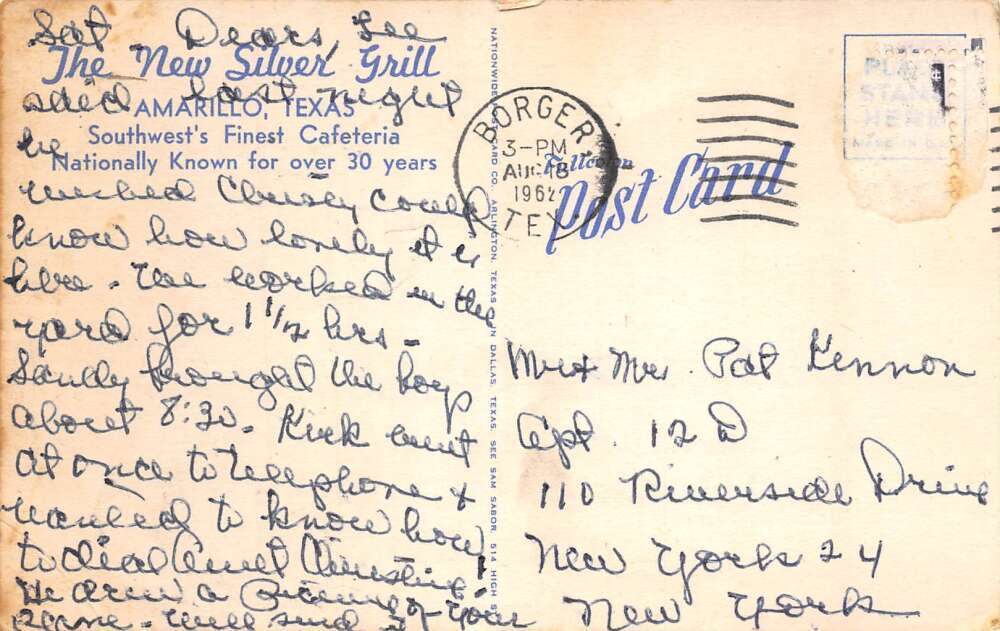 Sat. Dears, Lee
The New Silver Grill
said last night
AMARILLO, TEXAS
Southwest's Finest Cafeteria
he
Nationally Known for over 30 years
wished Chrissy could
know how lovely it is
here - We worked in the
yard for 1 1/2 hrs -
Sandy brought the boys
about 8:30. Kirk went
at once to telephone &
wanted to know how
to dial Aunt Christine!
He drew a picture of your
plane - will send it
NATIONWIDE POST CARD CO. ARLINGTON, TEXAS IN DALLAS, TEXAS, SEE SAM SABOR 514 HIGH S
BORGER
3-PM
AUG 18
1962
TEX.
Fullcolor
Post Card
PLACE
STAMP
HERE
MADE IN U.S.A.
Mr & Mrs. Pat Kennon
Apt. 12 D
110 Riverside Drive
New York 24
New York